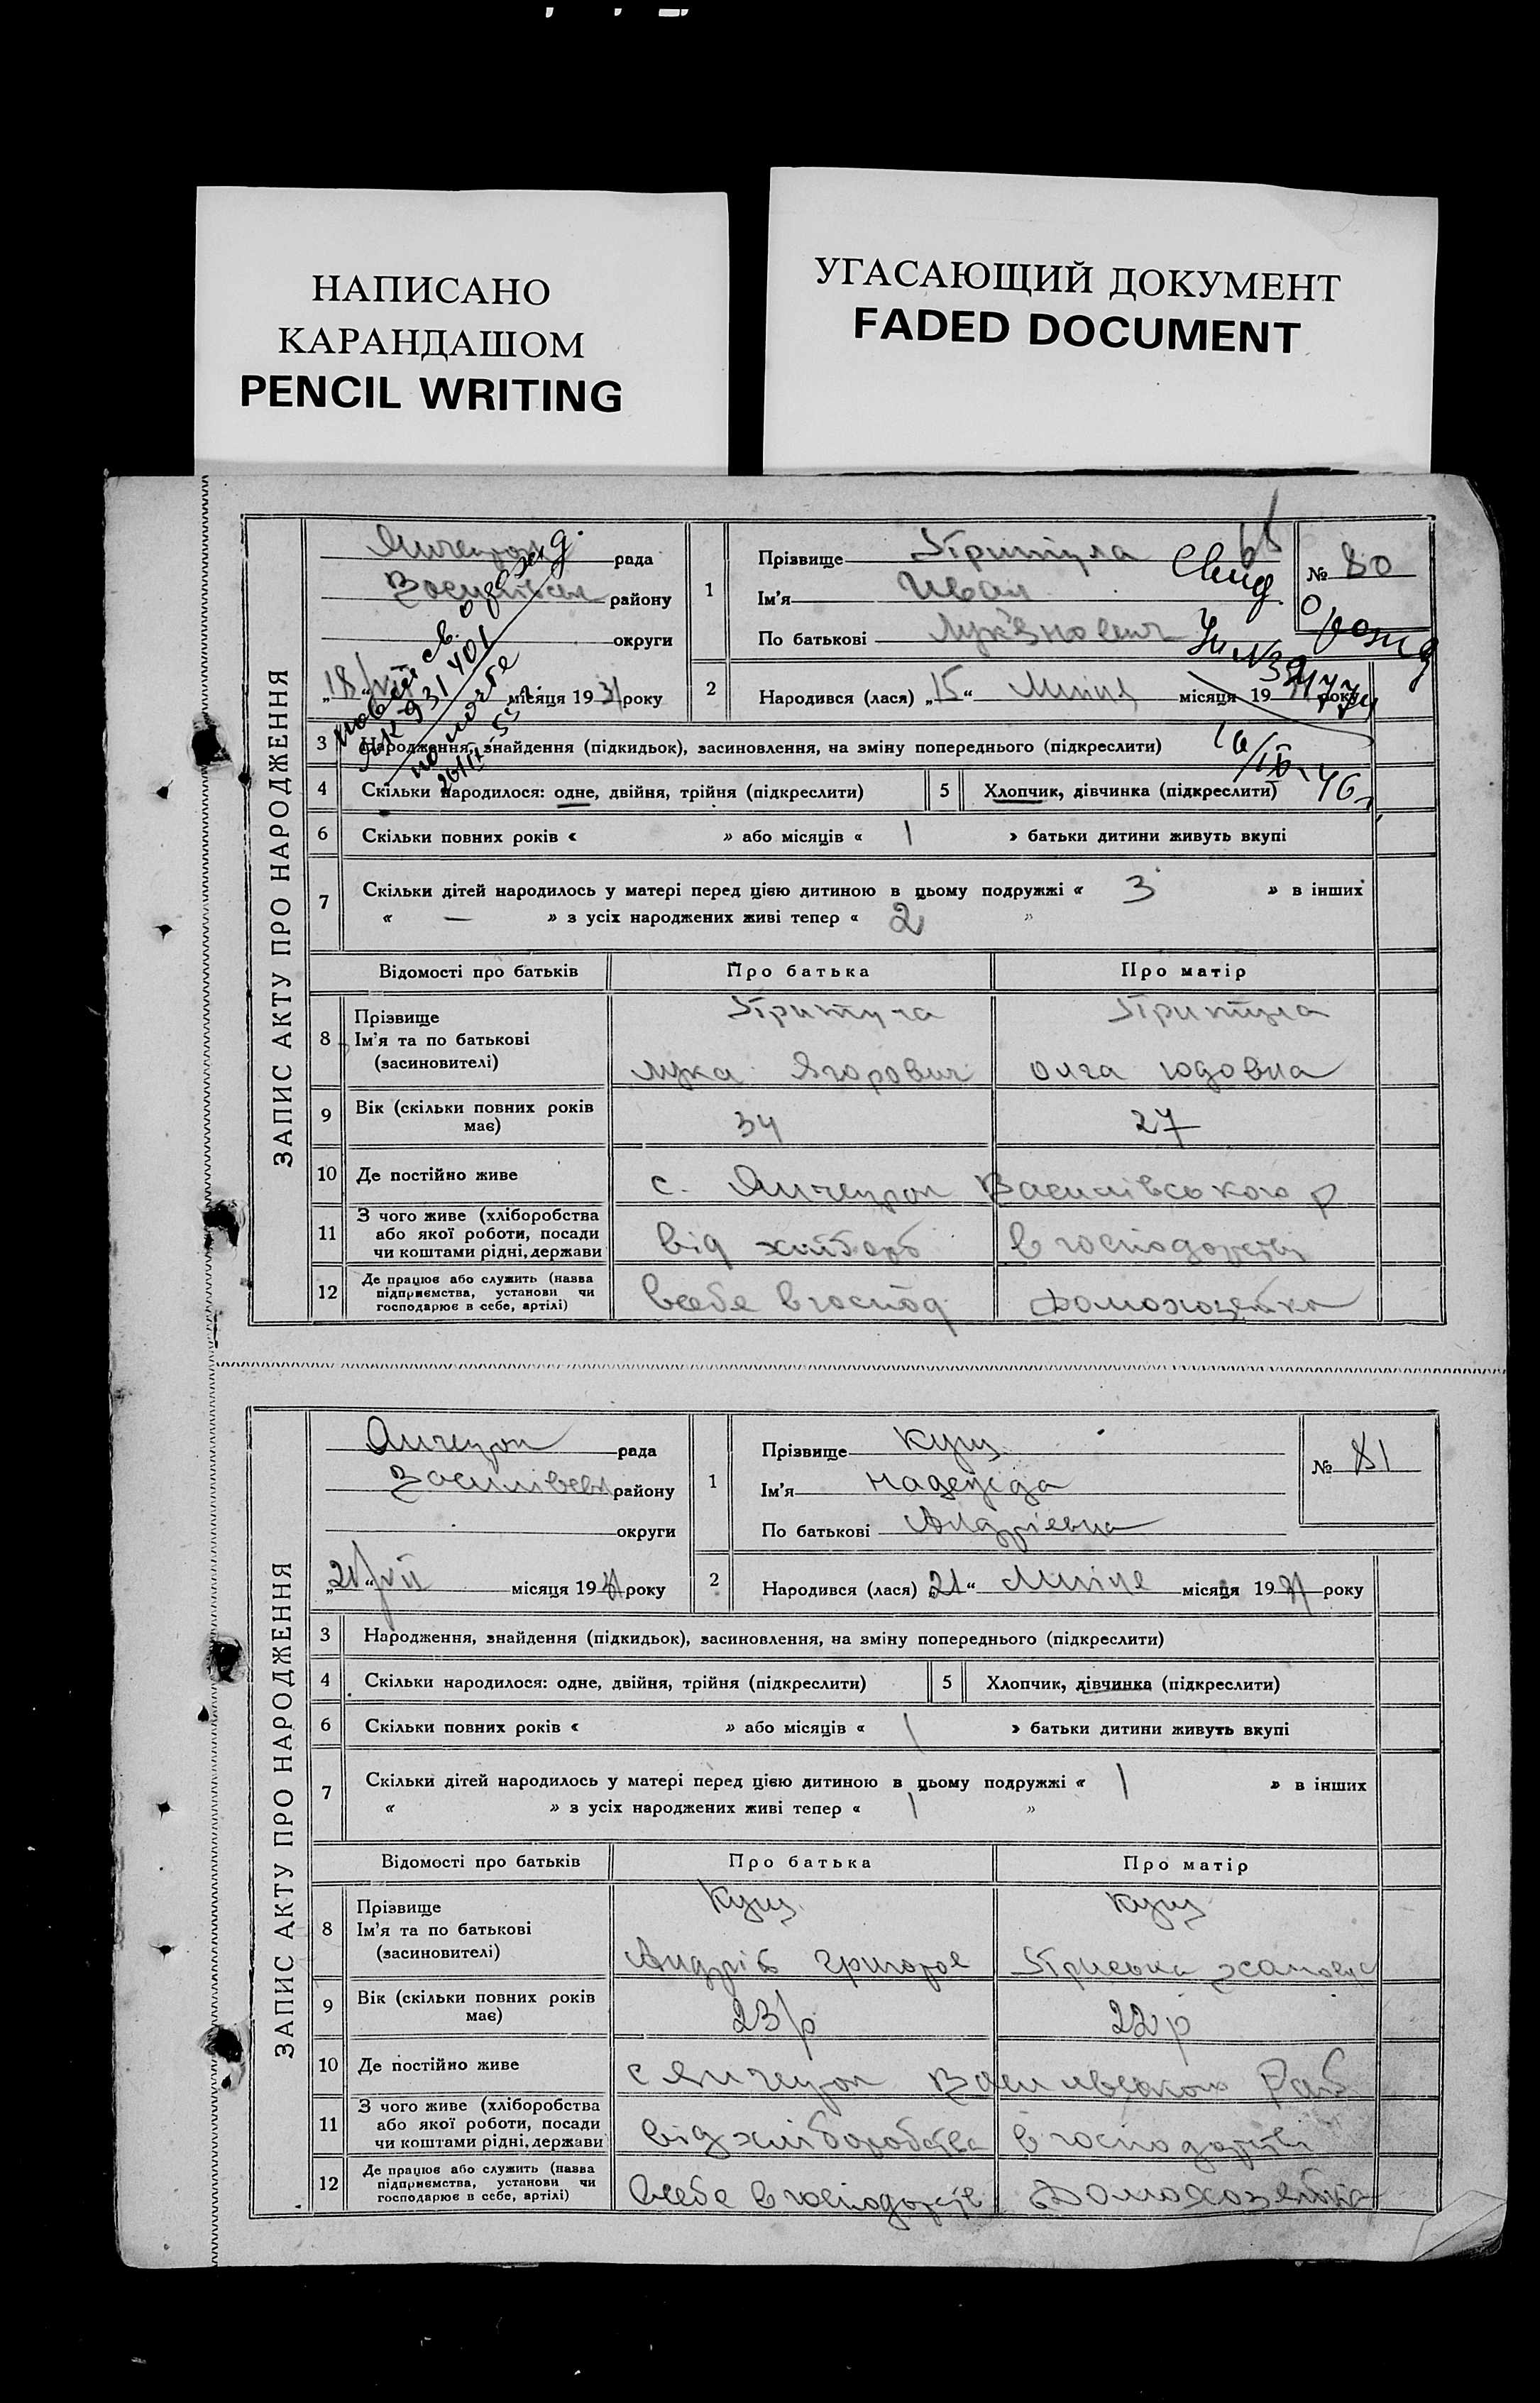 НАПИСАНО
КАРАНДАШОМ
PENCIL WRITING
УГАСАЮЩИЙ ДОКУМЕНТ
FADED DOCUMENT
ЗАПИС АКТУ ПРО НАРОДЖЕННЯ
рада
району
округи
„18“ VII місяця 1931 року
1 Прізвище Притула
Ім'я Иван
По батькові Лук'янович
№ 80
2 Народився (лася) „15“ Липня місяця 19 року
3 Народження, знайдення (підкидьок), засиновлення, на зміну попереднього (підкреслити)
4 Скільки народилося: одне, двійня, трійня (підкреслити) 5 Хлопчик, дівчинка (підкреслити)
6 Скільки повних років « » або місяців « / » батьки дитини живуть вкупі
7 Скільки дітей народилось у матері перед цією дитиною в цьому подружжі « 3 » в інших
« — » з усіх народжених живі тепер « 2 »
Відомості про батьків Про батька Про матір
8 Прізвище Притула Притула
Ім'я та по батькові
(засиновителі) Лука Ягорович Олга Юдовна
9 Вік (скільки повних років має) 34 27
10 Де постійно живе с. Янчекрак Василівського р
11 З чого живе (хліборобства або якої роботи, посади чи коштами рідні, держави від хлібороб в господарстві
12 Де працює або служить (назва підприємства, установи чи господарює в себе, артілі) в себе в господ Домохозяйка
ЗАПИС АКТУ ПРО НАРОДЖЕННЯ
Янчекрак рада
Василівськ району
округи
„21“ VII місяця 1931 року
1 Прізвище Кущ
Ім'я Надежда
По батькові Андріевна
№ 81
2 Народився (лася) 21“ Липня місяця 1931 року
3 Народження, знайдення (підкидьок), засиновлення, на зміну попереднього (підкреслити)
4 Скільки народилося: одне, двійня, трійня (підкреслити) 5 Хлопчик, дівчинка (підкреслити)
6 Скільки повних років « » або місяців « / » батьки дитини живуть вкупі
7 Скільки дітей народилось у матері перед цією дитиною в цьому подружжі « 1 » в інших
« » з усіх народжених живі тепер « 1 »
Відомості про батьків Про батька Про матір
8 Прізвище Кущ Кущ
Ім'я та по батькові
(засиновителі) Андрій Григоров
9 Вік (скільки повних років має) 23 р 22 р
10 Де постійно живе с Янчекрак Василівського Рай
11 З чого живе (хліборобства або якої роботи, посади чи коштами рідні, держави від хліборобства в господарстві
12 Де працює або служить (назва підприємства, установи чи господарює в себе, артілі) в себе в господарстві Домохозяйка